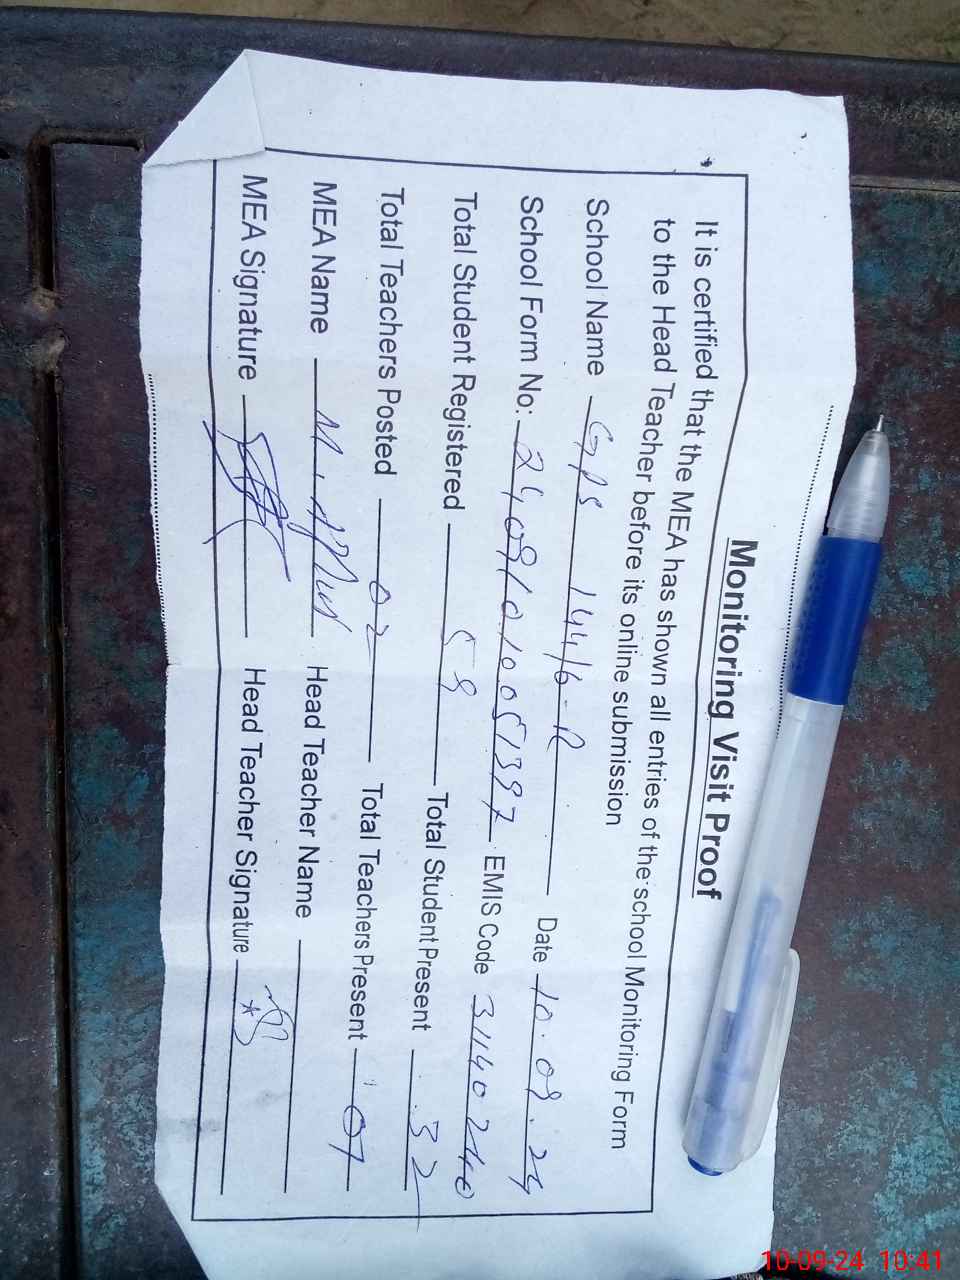 Monitoring Visit Proof
It is certified that the MEA has shown all entries of the school Monitoring Form
to the Head Teacher before its online submission
School Name GPS 144/6-R Date 10.09.24
School Form No: EMIS Code 31140240
Total Student Registered 59 Total Student Present 32
Total Teachers Posted 02 Total Teachers Present 01
MEA Name M. Head Teacher Name
MEA Signature Head Teacher Signature
10-09-24 10:41